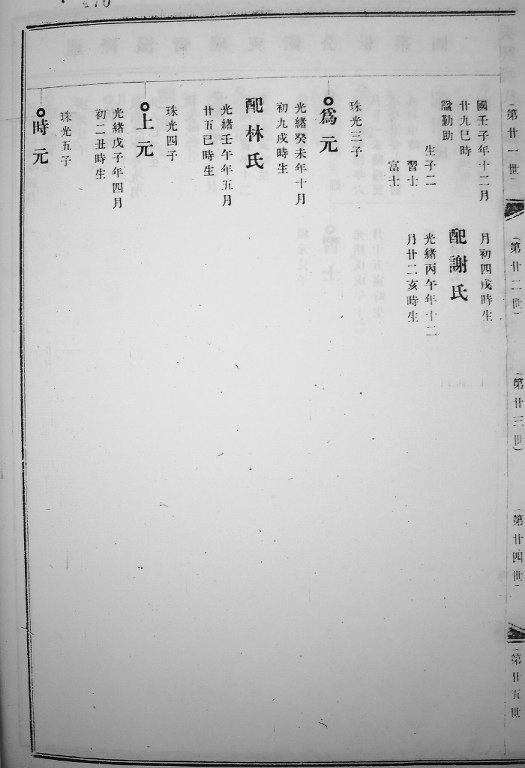 第廿一世
第廿二世
第廿三世
第廿四世
第廿五世
國壬子年十二月
廿九巳時
諡勤助
生子二
習士
富士
月初四戌時生
配謝氏
光緒丙午年十二
月廿二亥時生
為元
珠光三子
光緒癸未年十月
初九戌時生
配林氏
光緒壬午年五月
廿五巳時生
上元
珠光四子
光緒戊子年四月
初二丑時生
時元
珠光五子